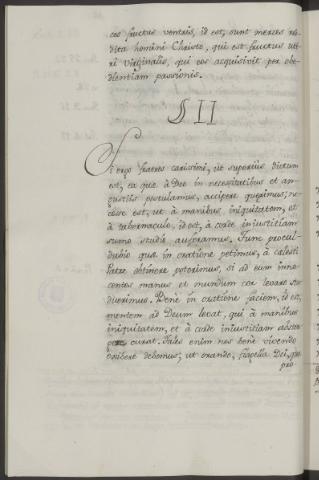 eos fructus ventris, id est, sunt merces re-
dita homini Christo, qui est fructus ute-
ri virginalis, qui eos acquisivit per obe-
dientiam passionis.
§ II
Si ergo fratres carissimi, ut superius dictum
est, ea quæ à Deo in necessitatibus et an-
gustiis postulamus, accipere querimus; ne-
cesse est, ut à manibus iniquitatem, et
à tabernaculo, id est, à corde iniustitiam
sumo studio auferamus. Tunc procul-
dubio quæ in oratione petimus, à cælesti
Patre obtinere poterimus, si ad eum inno-
centes manus et mundum cor levare stu-
duerimus. Bene in oratione faciem, id est,
mentem ad Deum levat, qui à manibus
iniquitatem, et à corde iniustitiam abster-
curat. Tales enim nos bene vivendo
exibere debemus; ut orando, flagella Dei,
pro-